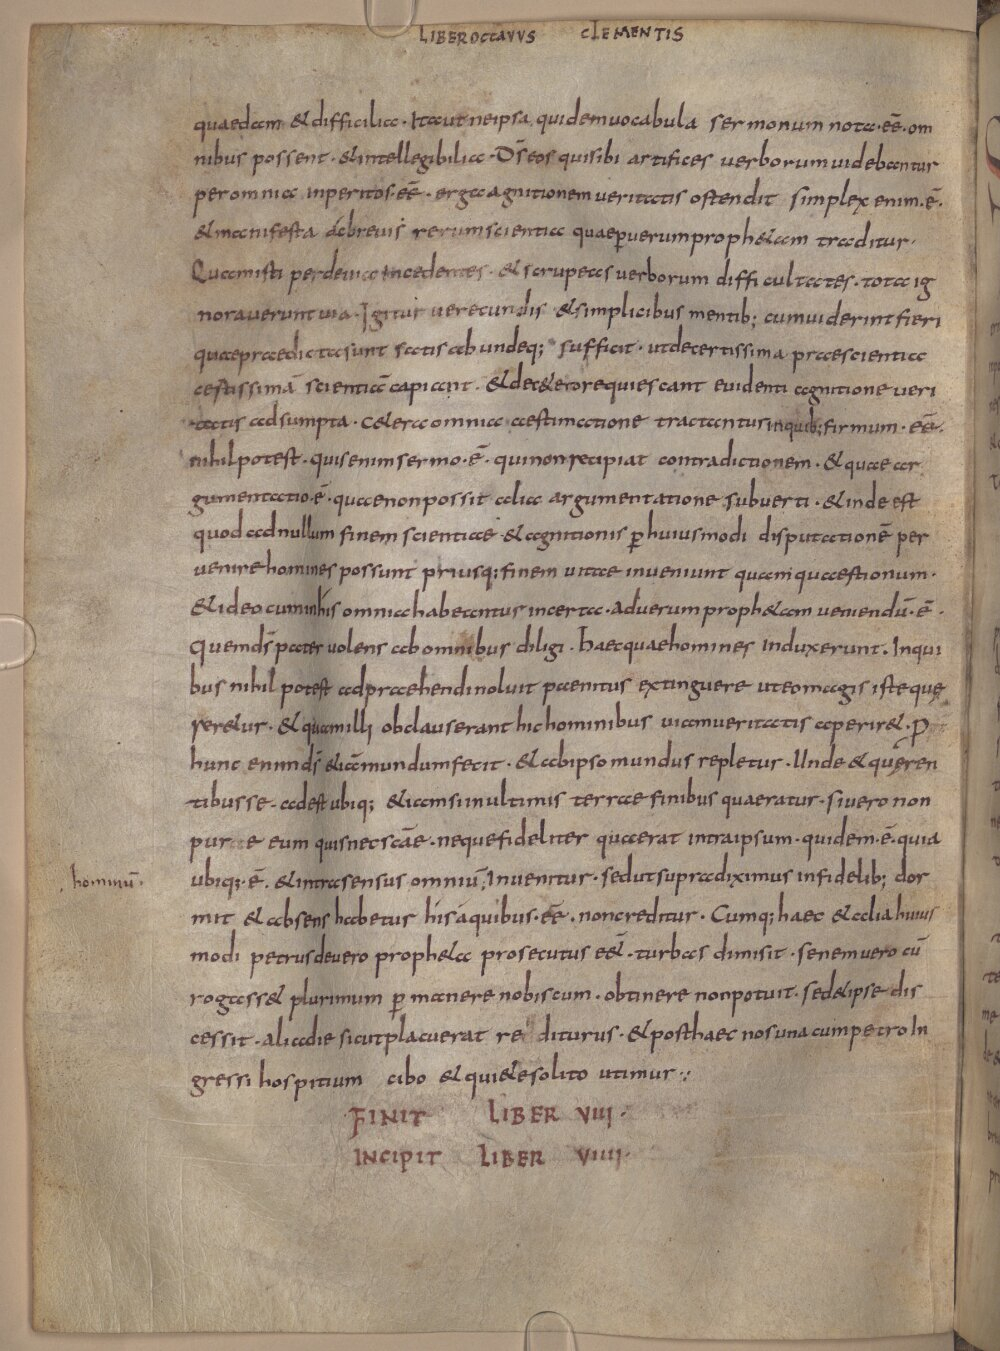 LIBER OCTAVVS CLEMENTIS
quaedam & difficilia · Ita ut ne ipsa quidem uocabula sermonum nota · eē · om
nibus possent · & intellegibilia · D̄s eos qui sibi artifices uerborum uidebantur
per omnia inperitos · eē · erga agnitionem ueritatis ostendit simplex enim · ē ·
& manifesta & breuis rerum scientia quae ꝑ uerum prophetam traditur ·
Quam isti per deuia incedentes · & scrupeas uerborum difficultates · tota ig
norauerunt uia · Igitur uerecundis & simplicibus mentib; cum uiderint fieri
quae praedicta sunt satis abundeq; sufficit · ut de certissima praescientia
certissimā scientiā capiant · & de cetero requiescant euidenti agnitione ueri
tatis adsumpta · Cetera omnia aestimatione tractantur in quib; firmum · eē ·
nihil potest · quis enim sermo · ē · qui non recipiat contradictionem · & quae ar
gumentatio · ē · quae non possit alia argumentatione subuerti · & inde est
quod ad nullum finem scientiae & agnitionis ꝑ huiusmodi disputationē per
uenire homines possunt priusq; finem uitae inueniunt quam quaestionum ·
& ideo cum in his omnia habeantur incerta · ad uerum prophetam ueniendū · ē ·
Quem d̄s pater uolens ab omnibus diligi · haec quae homines induxerunt · In qui
bus nihil potest adpraehendi noluit paenitus extinguere ut eo magis iste quę
reretur · & quam illi obclauserant hic hominibus uiam ueritatis aperiret · P
hunc enim d̄s etiā mundum fecit · & ab ipso mundus repletur · Unde & quęren
tibus se · adest ubiq; etiam si in ultimis terrae finibus quaeratur · si uero non
pure eum quis nec scāe · neque fideliter quaerat intra ipsum · quidem · ē · quia
hominū ·
ubiq; · ē · & intra sensus omniū Inuenitur · sed ut supra diximus infidelib; dor
mit & absens habetur his a quibus · eē · non creditur · Cumq; haec & alia huius
modi petrus de uero propheta prosecutus eēt · turbas dimisit · senem uero cū
rogasset plurimum ꝑ manere nobiscum · obtinere non potuit · sed & ipse dis
cessit · alia die sicut placuerat re diturus · & post haec nos una cum petro In
gressi hospitium cibo & quiete solito utimur :
FINIT LIBER VIII ·
INCIPIT LIBER VIIII ·